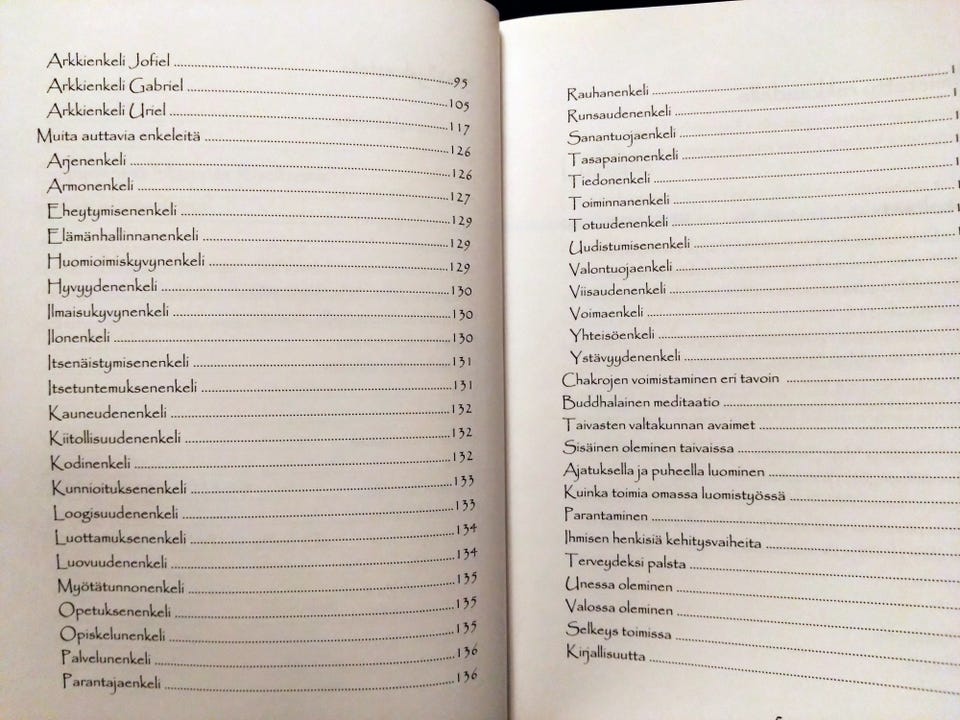 Arkkienkeli Jofiel 95
Arkkienkeli Gabriel 105
Arkkienkeli Uriel 117
Muita auttavia enkeleitä 126
Arjenenkeli 126
Armonenkeli 127
Eheytymisenenkeli 129
Elämänhallinnanenkeli 129
Huomioimiskyvynenkeli 129
Hyvyydenenkeli 130
Ilmaisukyvynenkeli 130
Ilonenkeli 130
Itsenäistymisenenkeli 131
Itsetuntemuksenenkeli 131
Kauneudenenkeli 132
Kiitollisuudenenkeli 132
Kodinenkeli 132
Kunnioituksenenkeli 133
Loogisuudenenkeli 133
Luottamuksenenkeli 134
Luovuudenenkeli 134
Myötätunnonenkeli 135
Opetuksenenkeli 135
Opiskelunenkeli 135
Palvelunenkeli 136
Parantajaenkeli 136
Rauhanenkeli
Runsaudenenkeli
Sanantuojaenkeli
Tasapainonenkeli
Tiedonenkeli
Toiminnanenkeli
Totuudenenkeli
Uudistumisenenkeli
Valontuojaenkeli
Viisaudenenkeli
Voimaenkeli
Yhteisöenkeli
Ystävyydenenkeli
Chakrojen voimistaminen eri tavoin
Buddhalainen meditaatio
Taivasten valtakunnan avaimet
Sisäinen oleminen taivaissa
Ajatuksella ja puheella luominen
Kuinka toimia omassa luomistyössä
Parantaminen
Ihmisen henkisiä kehitysvaiheita
Terveydeksi palsta
Unessa oleminen
Valossa oleminen
Selkeys toimissa
Kirjallisuutta